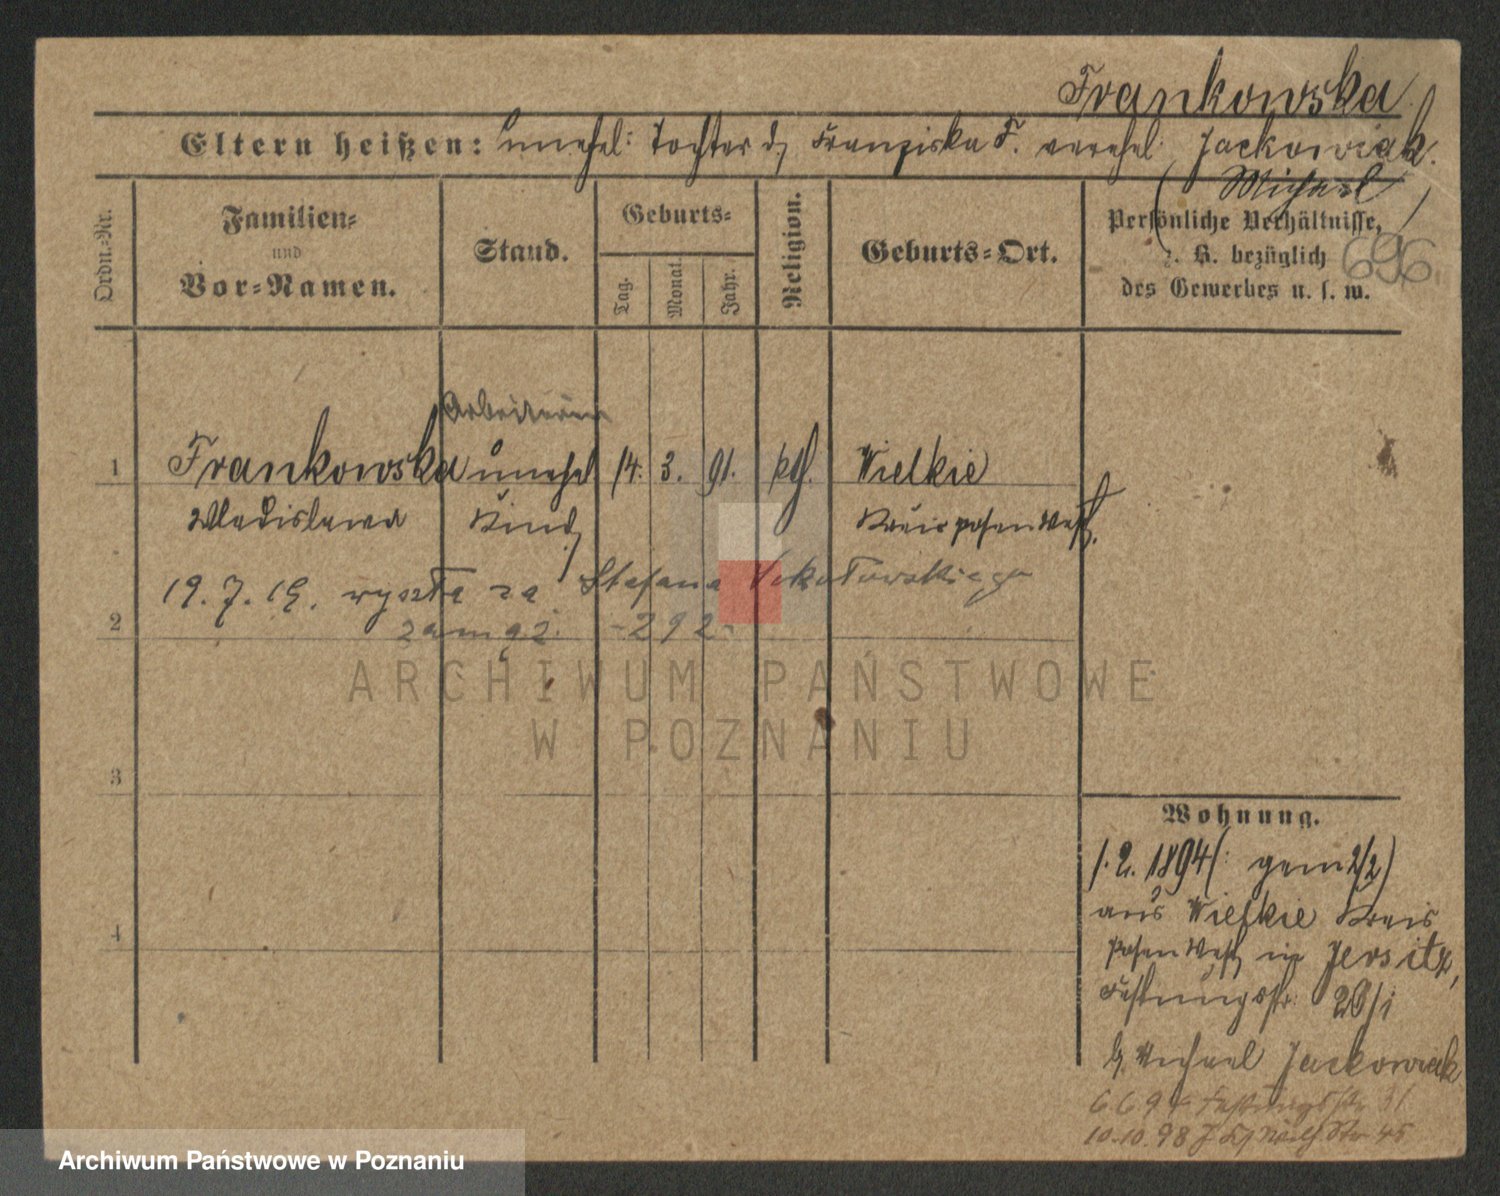 Frankowska
Eltern heißen: unehel: Tochter d. Franziska F. verehel: Jackowiak.
(Michael)
Ordn.-Nr.
Familien-
und
Vor-Namen.
Stand.
Geburts-
Tag.
Monat.
Jahr.
Religion.
Geburts-Ort.
Persönliche Verhältnisse,
z. B. bezüglich
des Gewerbes u. s. w.
696
Arbeiterin
1 Frankowska unehel 14. 3. 91. kth. Wielkie
Wladislawa Kind Kreis Posen West.
19. 7. 19. wyszła za Stefana Sokołowskiego
2 zamąż. -292-
3
4
Wohnung.
1. 2. 1894 (: gem 2/2)
aus Wielkie Kreis
Posen West in Jersitz,
Festungsstr. 26/I
b. Michael Jackowiak
6 6 94 Festungsstr 31
10.10.98 J. Str 45
ARCHIWUM PAŃSTWOWE
W POZNANIU
Archiwum Państwowe w Poznaniu